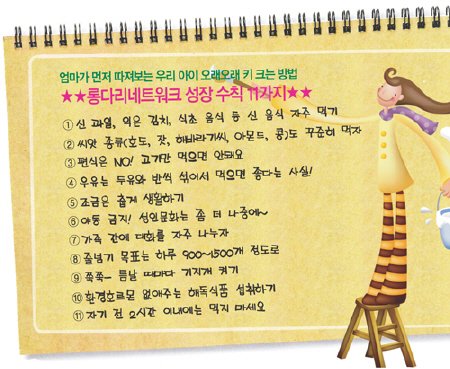 엄마가 먼저 따져보는 우리 아이 오래오래 키 크는 방법
★★롱다리네트워크 성장 수칙 11가지★★
① 신 과일, 익은 김치, 식초 음식 등 신 음식 자주 먹기
② 씨앗 종류(호도, 잣, 해바라기씨, 아몬드, 콩)도 꾸준히 먹자
③ 편식은 NO! 고기만 먹으면 안돼요
④ 우유는 두유와 반씩 섞어서 먹으면 좋다는 사실!
⑤ 조금은 춥게 생활하기
⑥ 야동 금지! 성인문화는 좀 더 나중에~
⑦ 가족 간에 대화를 자주 나누자
⑧ 줄넘기 목표는 하루 900~1500개 정도로
⑨ 쭉쭉- 틈날 때마다 기지개 켜기
⑩ 환경호르몬 없애주는 해독식품 섭취하기
⑪ 자기 전 2시간 이내에는 먹지 마세요